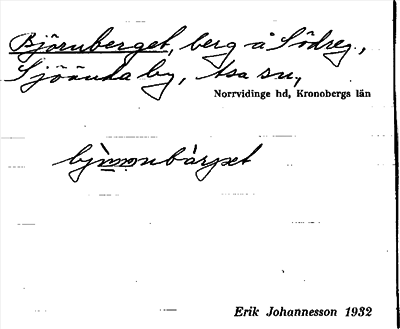 Björnberget, berg å Södreg.,
Sjöända by, Asa sn,
Norrvidinge hd, Kronobergs län
Erik Johannesson 1932